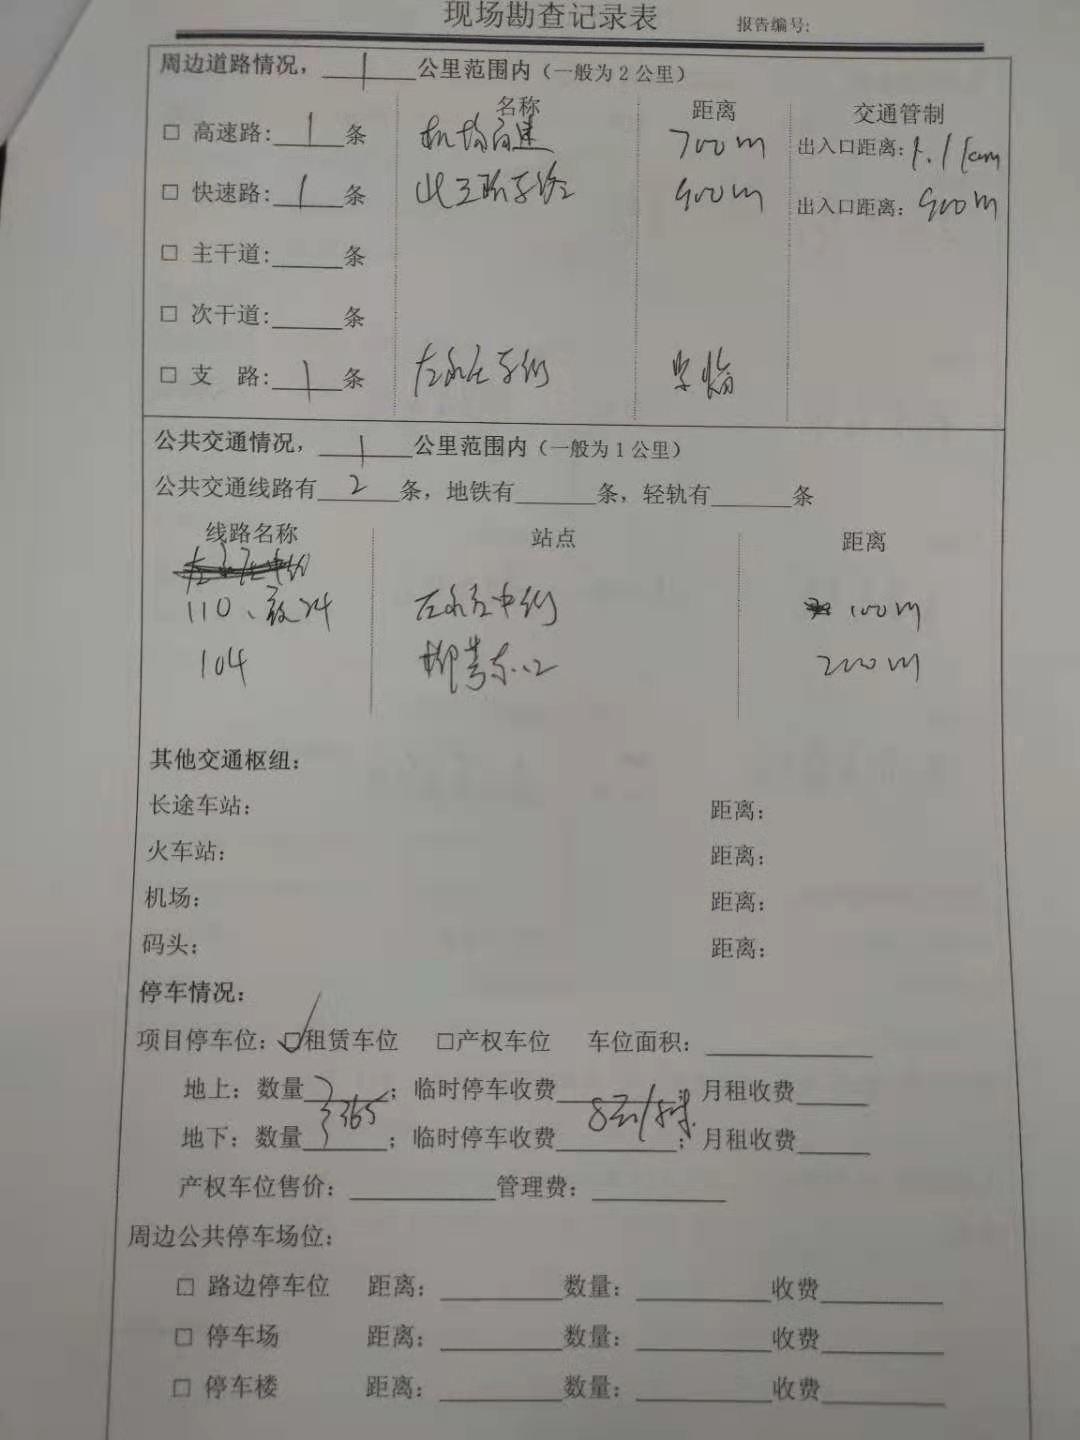 现场勘查记录表
报告编号:
周边道路情况，1公里范围内（一般为2公里）
名称 距离 交通管制
□ 高速路:1条 机场高速 700m 出入口距离:1.1km
□ 快速路:1条 北五环路 900m 出入口距离:900m
□ 主干道:____条
□ 次干道:____条
□ 支 路:1条
公共交通情况，1公里范围内（一般为1公里）
公共交通线路有2条，地铁有____条，轻轨有____条
线路名称 站点 距离
110、 100m
104 200m
其他交通枢纽:
长途车站: 距离:
火车站: 距离:
机场: 距离:
码头: 距离:
停车情况:
项目停车位: ☑租赁车位 □产权车位 车位面积:____
地上: 数量____; 临时停车收费____; 月租收费____
365 8元/
地下: 数量____; 临时停车收费____; 月租收费____
产权车位售价:____管理费:____
周边公共停车场位:
□ 路边停车位 距离:____数量:____收费____
□ 停车场 距离:____数量:____收费____
□ 停车楼 距离:____数量:____收费____